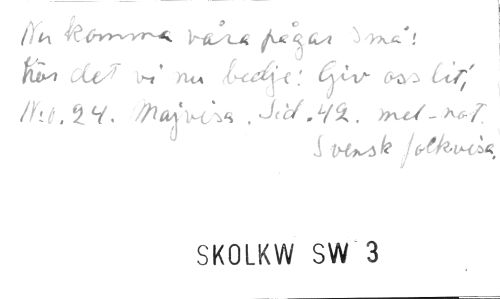 Nu komma våra pågar Små!
Hör det vi nu bedje: Giv oss lit,
N:o. 24. Majvisa. Sid. 42. mel-not.
Svensk folkvisa.
SKOLKW SW 3